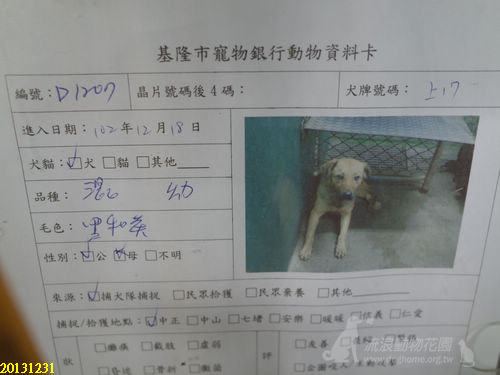 基隆市寵物銀行動物資料卡
編號：D1207 晶片號碼後4碼： 犬牌號碼：上17
進入日期：102年12月18日
犬貓：☑犬 □貓 □其他
品種：混 幼
毛色：
性別：☑公 ☑母 □不明
來源：☑捕犬隊捕捉 □民眾拾獲 □民眾棄養 □其他
捕捉/拾獲地點：☑中正 □中山 □七堵 □安樂 □暖暖 □信義 □仁愛
狀 □癱瘓 □截肢 □虛弱 評 □友善
□昏迷 □骨折 □黴菌
流浪動物花園
www.doghome.org.tw
20131231